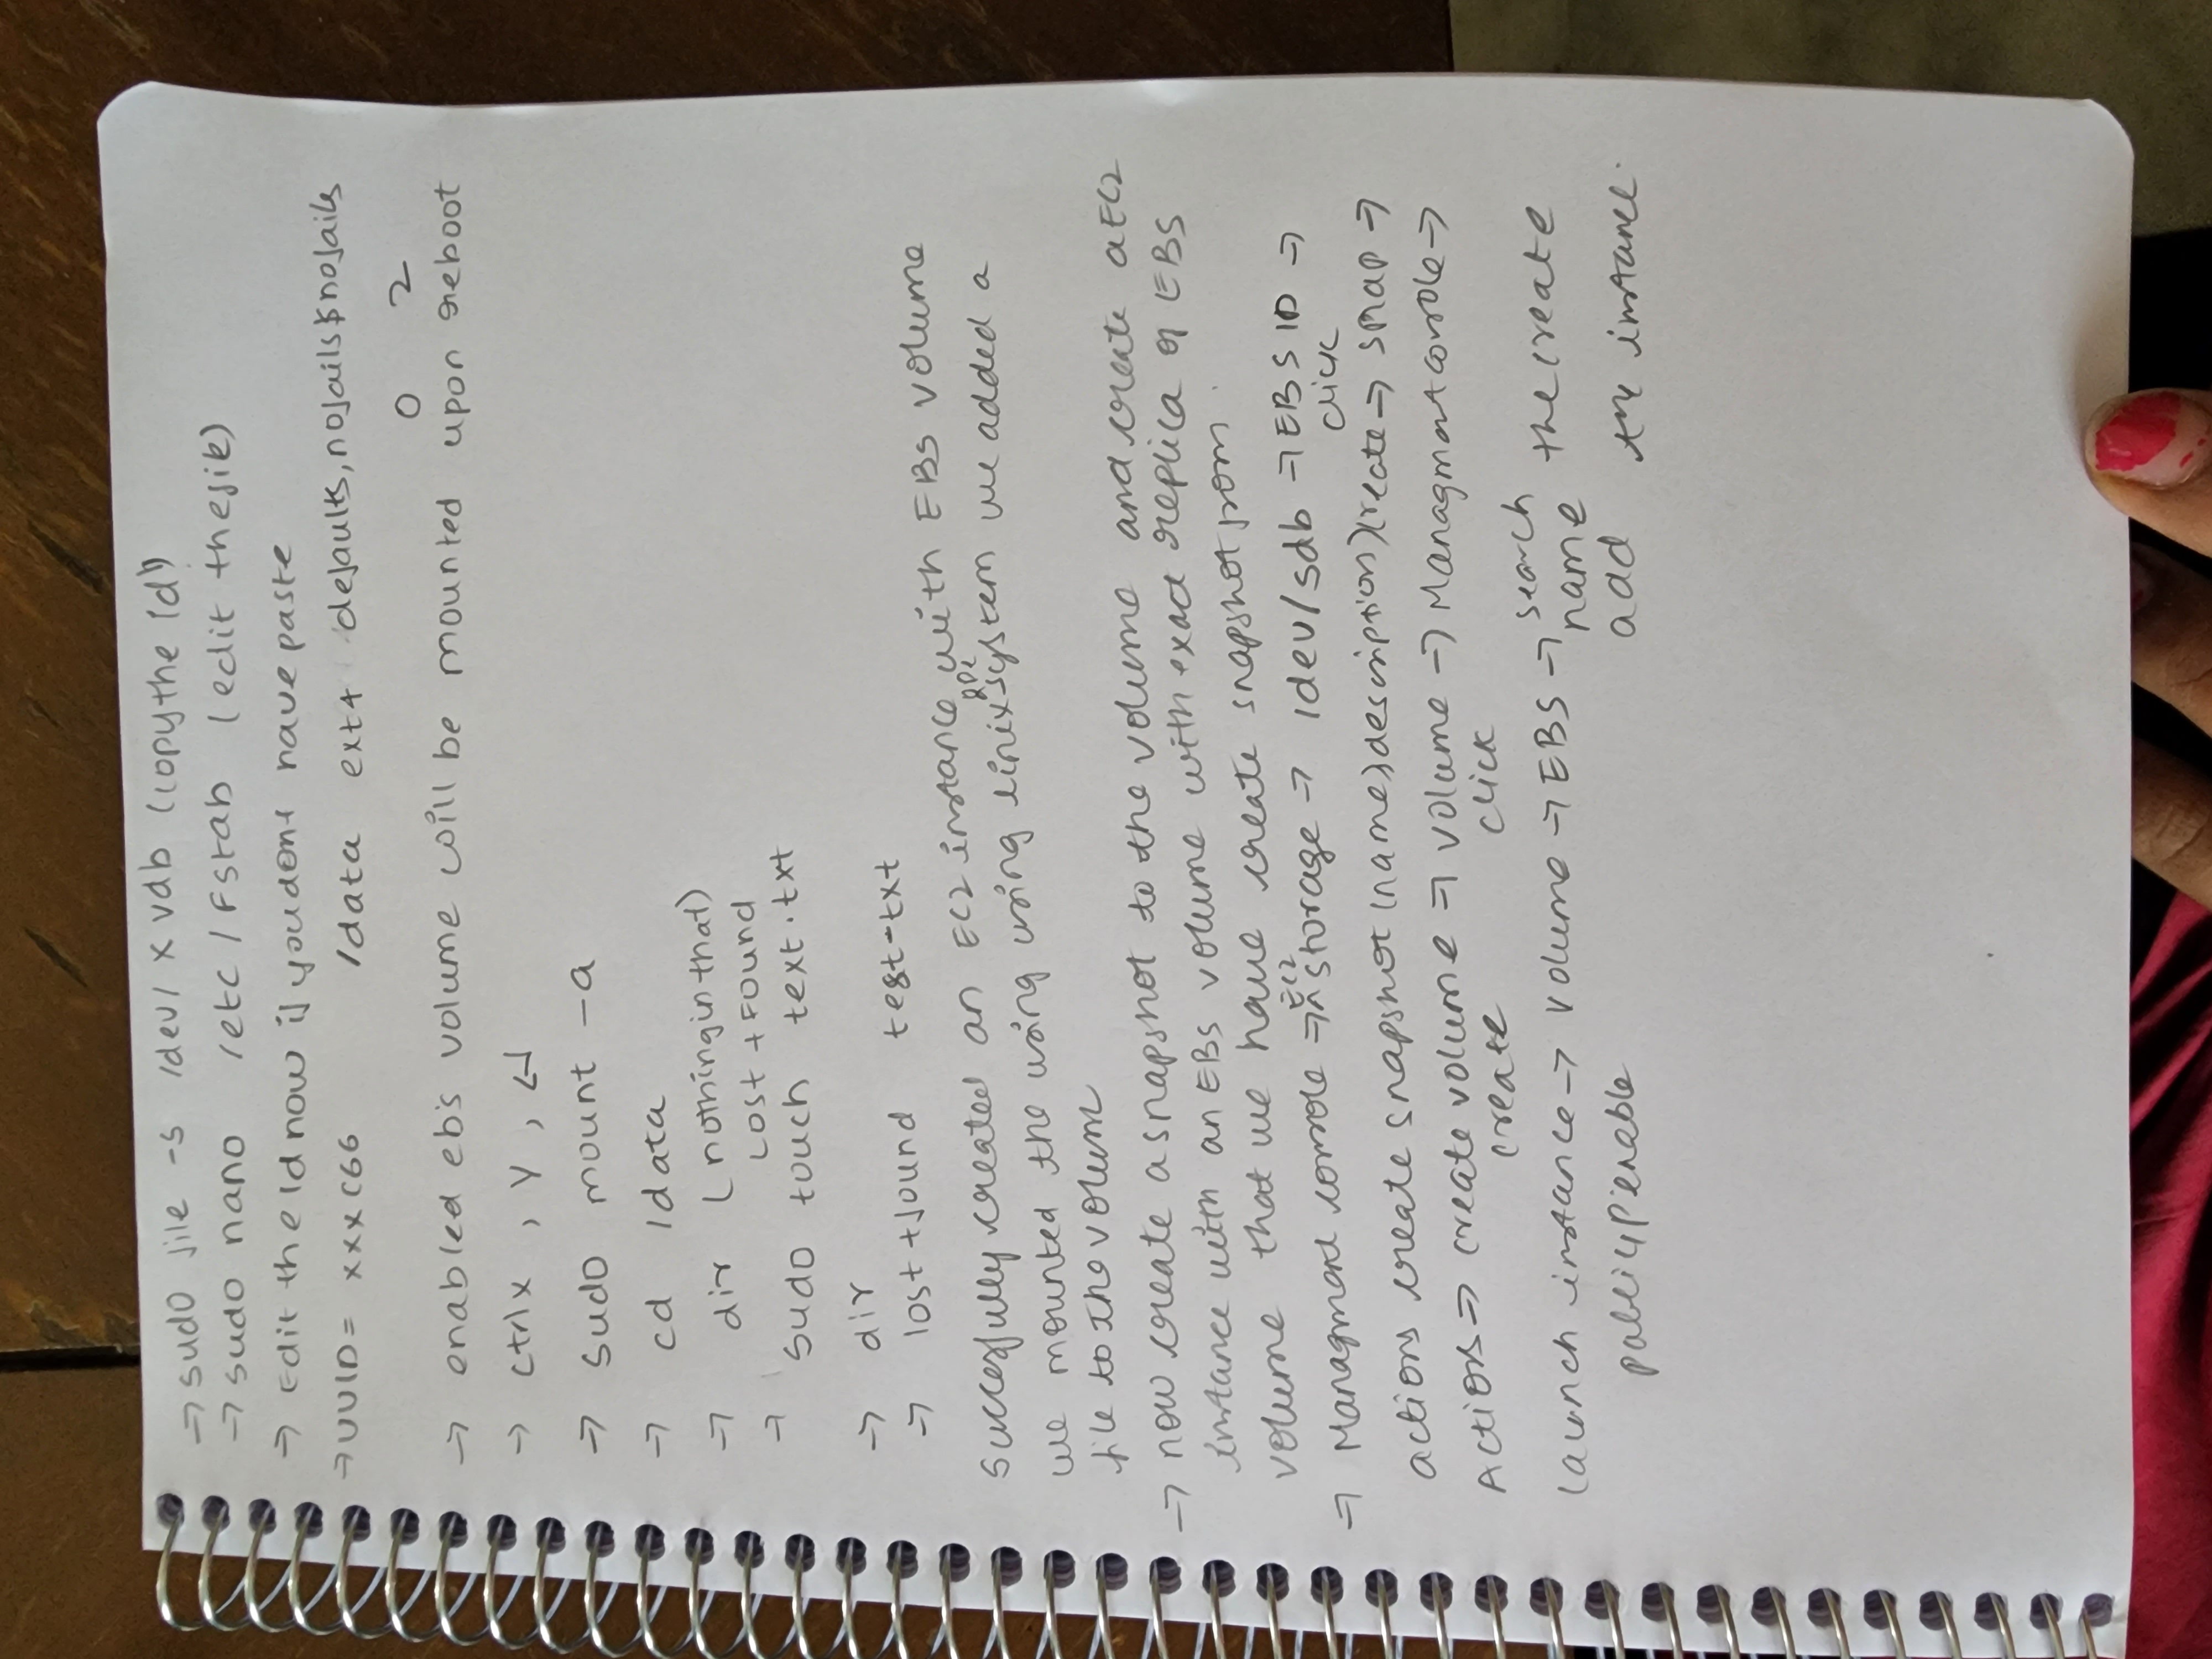 → sudo file -s /dev/xvdb (copy the id)
→ sudo nano /etc/Fstab (edit the file)
→ Edit the Id now if you dont have paste
→ UUID= xxxc66 /data ext4 defaults,nofails $nofails
0 2
→ enabled ebs volume will be mounted upon reboot
→ ctrlx , Y , ↵
→ sudo mount -a
→ cd /data
→ dir (nothing in that)
Lost + Found
→ sudo touch text.txt
→ dir
→ lost + found test-txt
Succesfully created an EC2 instance with EBS volume
we mounted the using using linix system we added a
file to the volum
→ now create a snapshot to the volume and create a EC2
instance with an EBS volume with exact replica of EBS
volume that we have create snapshot from.
→ Managment console → EC2 storage → /dev/sdb → EBS ID →
click
actions create snapshot (name) description) create → snap →
Actions → create volume → volume → Managment console →
create click
launch instance → volume → EBS → search name the create
public ip enable add the instance.